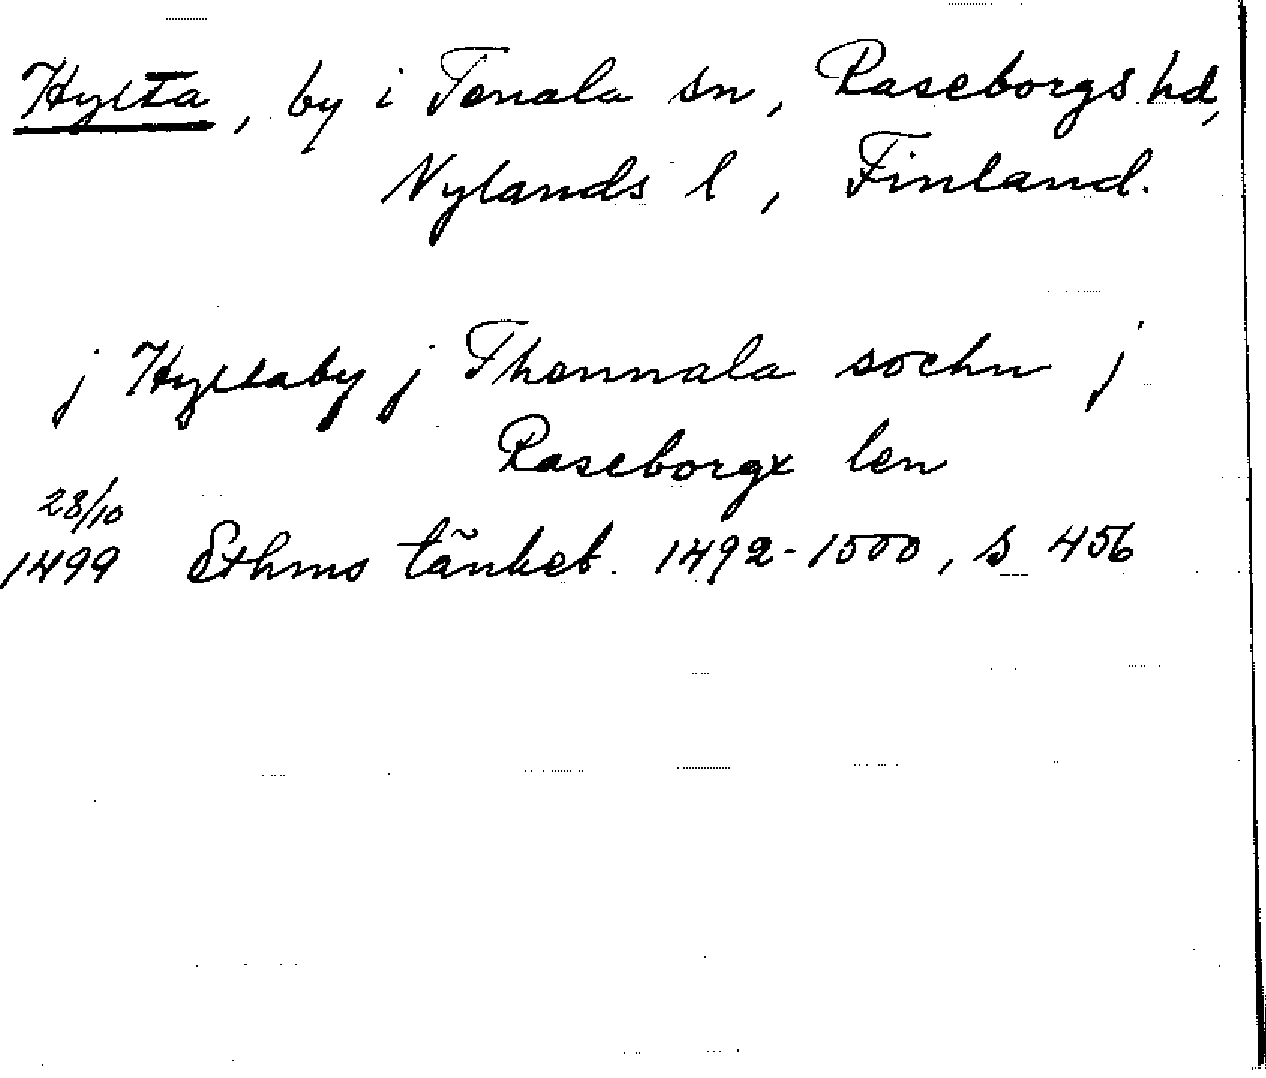 Hylta, by i Tenala sn, Raseborgs hd,
Nylands l, Finland.
j Hyltaby j Thennala sochn j
Raseborgx len
28/10
1499 Sthms tänkeb. 1492-1500, s 456